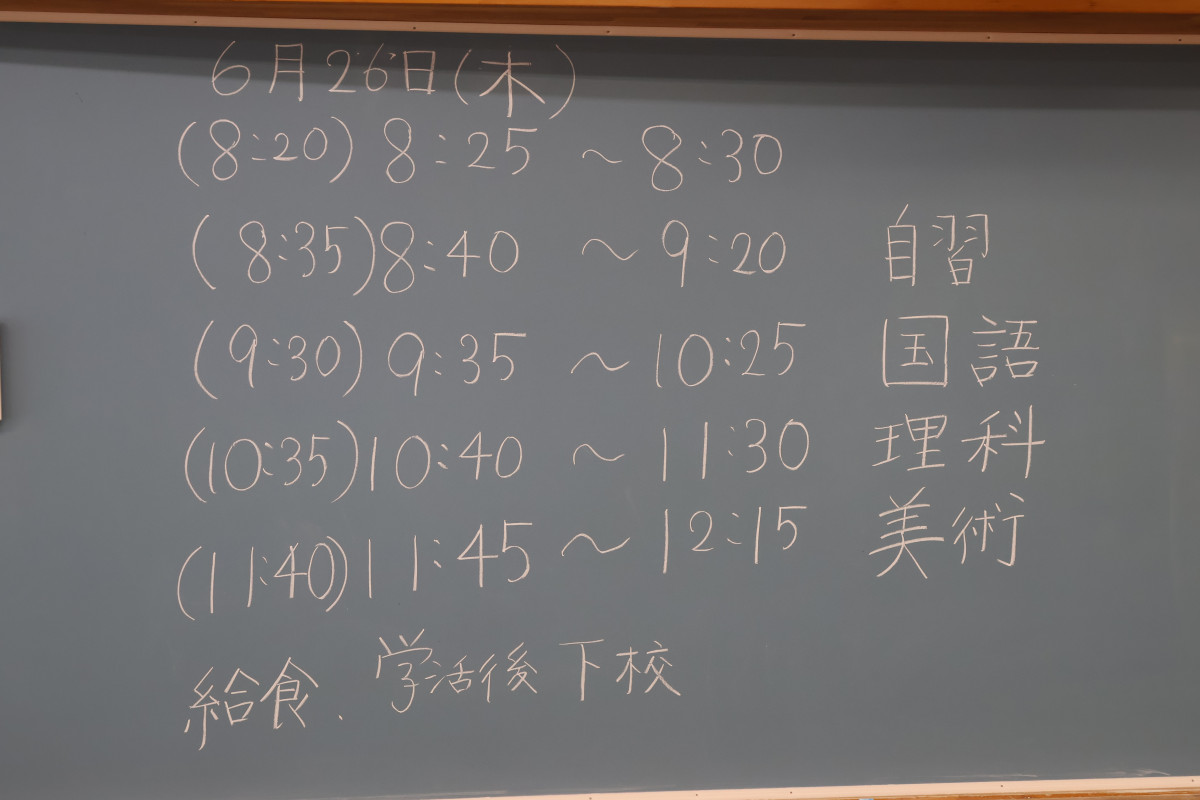 6月26日(木)
(8:20) 8:25 ～ 8:30
(8:35) 8:40 ～ 9:20 自習
(9:30) 9:35 ～ 10:25 国語
(10:35) 10:40 ～ 11:30 理科
(11:40) 11:45 ～ 12:15 美術
給食. 学活後下校